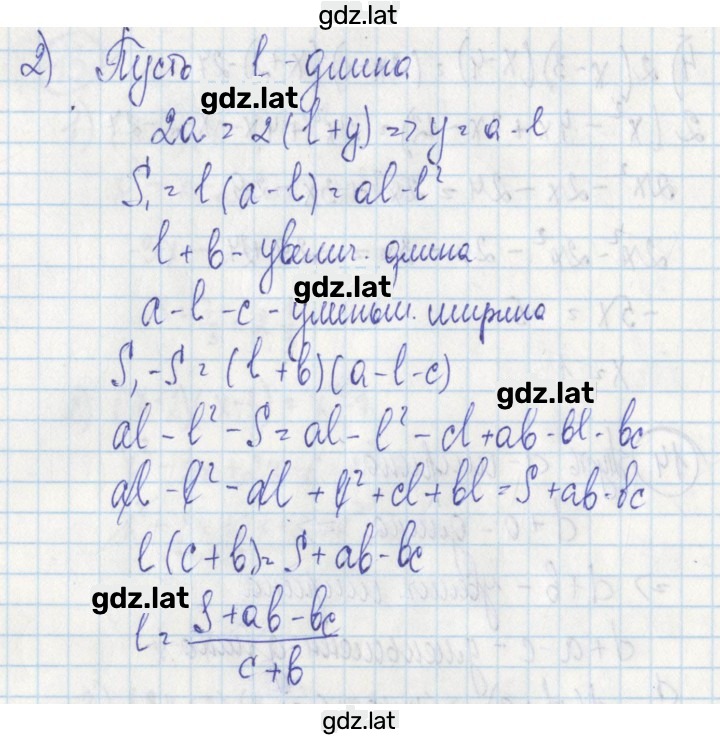 gdz.lat
2) Пусть l - длина
gdz.lat
2a = 2(l+y) => y = a - l
S₁ = l(a-l) = al - l²
l + b - увелич. длина
gdz.lat
a - l - c - уменьш. ширина
S₁ - S = (l+b)(a-l-c)
gdz.lat
al - l² - S = al - l² - cl + ab - bl - bc
al - l² - al + l² + cl + bl = S + ab - bc
l(c+b) = S + ab - bc
gdz.lat
l = S + ab - bc
c + b
gdz.lat